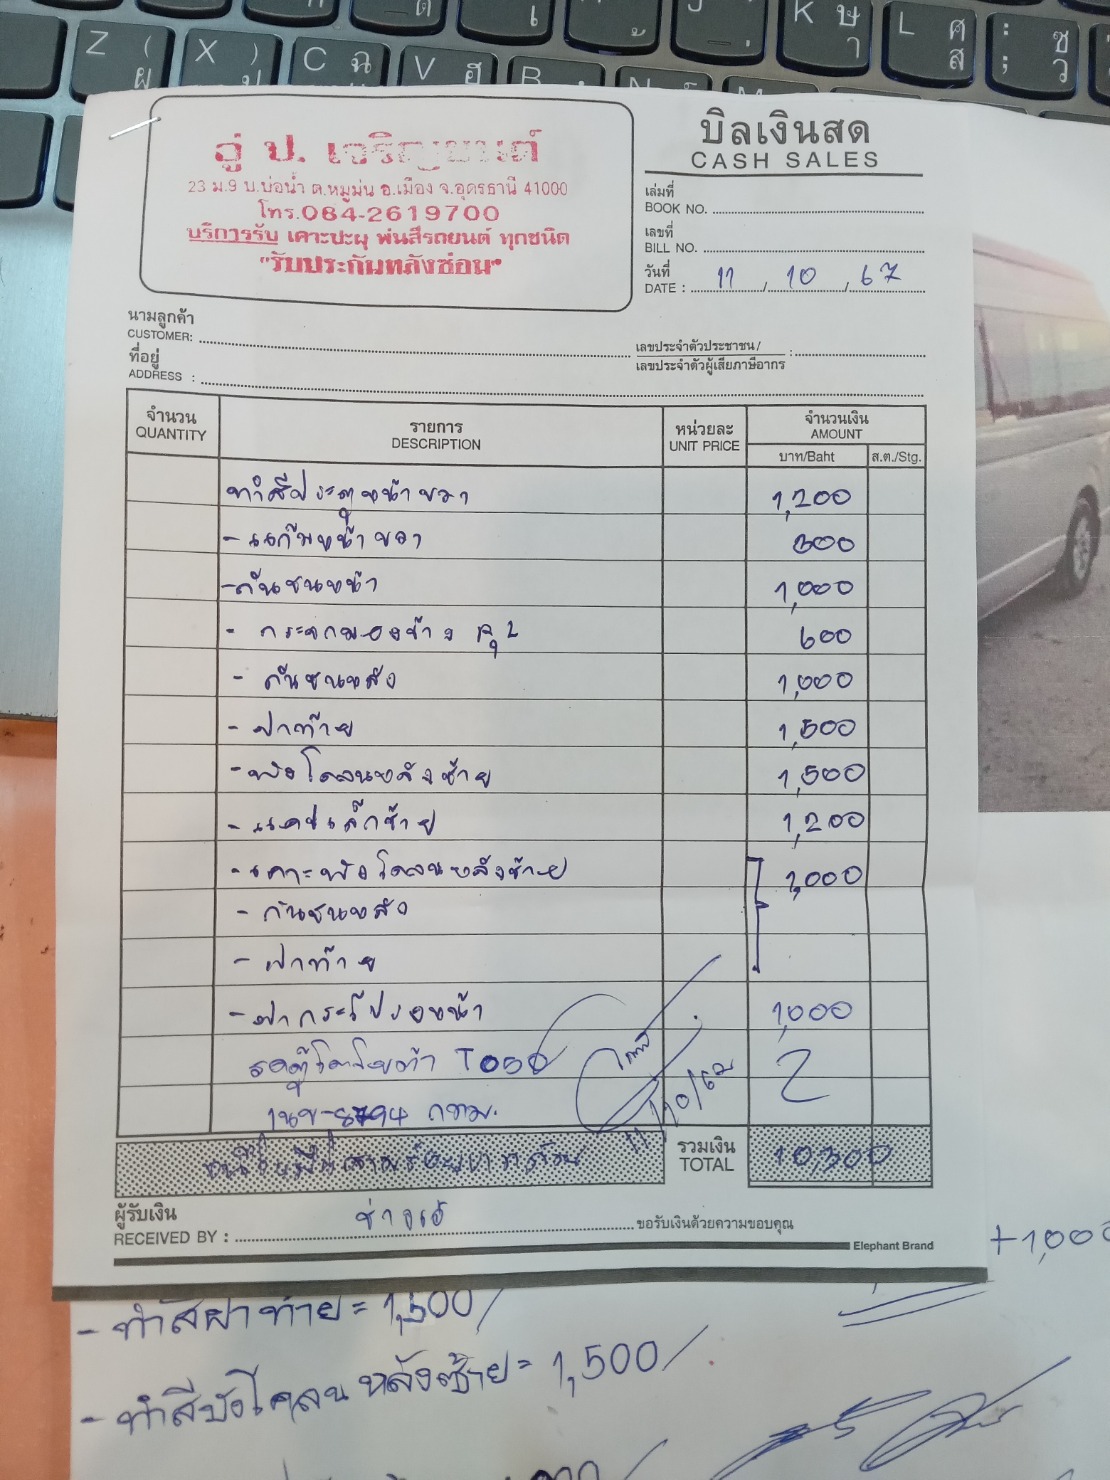 Z ( ผ X ) ป C ฉ V ฮ B N
K ษ า L ศ ส : ; ซ ว
อู่ ป. เจริญยนต์
23 ม.9 บ.บ่อน้ำ ต.หมูม่น อ.เมือง จ.อุดรธานี 41000
โทร.084-2619700
บริการรับ เคาะปะผุ พ่นสีรถยนต์ ทุกชนิด
"รับประกันหลังซ่อม"
บิลเงินสด
CASH SALES
เล่มที่
BOOK NO.
เลขที่
BILL NO.
วันที่
DATE : 11 / 10 / 67
นามลูกค้า
CUSTOMER:
เลขประจำตัวประชาชน /
เลขประจำตัวผู้เสียภาษีอากร :
ที่อยู่
ADDRESS :
จำนวน รายการ หน่วยละ จำนวนเงิน
QUANTITY DESCRIPTION UNIT PRICE AMOUNT
บาท/Baht ส.ต./Stg.
ทำสีประตูหน้าขวา 1,200
- แก้มหน้าขวา 300
- กันชนหน้า 1,000
- กระจกมองข้าง 2 600
- กันชนหลัง 1,000
- ฝาท้าย 1,500
- บังโคลนหลังซ้าย 1,500
- แคปเล็กซ้าย 1,200
- เคาะบังโคลนหลังซ้าย 1,000
- กันชนหลัง
- ฝาท้าย
- ฝากระโปรงหน้า 1,000
รถตู้โตโยต้า T050
1นข-8794 กทม.
11/10/67
รวมเงิน
TOTAL 10300
หนึ่งหมื่นสามร้อยบาทถ้วน
ผู้รับเงิน
RECEIVED BY : ช่างเอ๋ ขอรับเงินด้วยความขอบคุณ
Elephant Brand
+1,000
- ทำสีฝาท้าย = 1,500/
- ทำสีบังโคลนหลังซ้าย = 1,500/